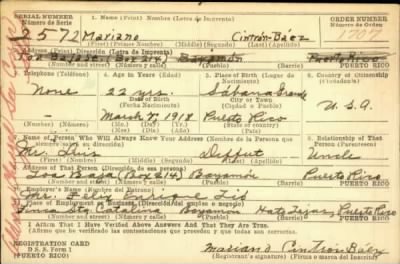 SERIAL NUMBER 1. Name (Print) Nombre (Letra de Imprenta) ORDER NUMBER
Número de Serie Número de Orden
2572 Mariano Cintrón-Báez 1707
(First) (Primer Nombre) (Middle) (Segundo) (Last) (Apellido)
2. Address (Print) Dirección (Letra de Imprenta)
Toa Baja (Box 214) Bayamón Puerto Rico
(Town) (Pueblo) (Barrio) PUERTO RICO
3. Telephone (Teléfono) 4. Age in Years (Edad) 5. Place of Birth (Lugar de Nacimiento) 6. Country of Citizenship (Ciudadanía)
None 22 yrs. Sabana Grande
Date of Birth City or Town
(Fecha Nacimiento) (Ciudad o Pueblo) U.S.A.
- March 7, 1918 Puerto Rico
(Barrio)
7. Name of Person Who Will Always Know Your Address (Nombre de la Persona que siempre sabrá su Dirección) 8. Relationship of That Person (Parentesco)
Mr. Luis Uncle
(Mr., Mrs., Miss) (First) (Middle) (Last)
9. Address of That Person (Dirección de esa persona)
Toa Baja (Box 214) Bayamón Puerto Rico
(Barrio) PUERTO RICO
10. Employer's Name (Nombre del Patrono)
Mr. Felix Enrique
11. Place of Employment or Business (Dirección del empleo o negocio)
Finca Sta. Catalina Bayamón Hato Tejas, Puerto Rico
(Barrio) PUERTO RICO
I Affirm That I Have Verified Above Answers And That They Are True.
Afirmo que he verificado las contestaciones que preceden y que todas son correctas.
REGISTRATION CARD
D. S. S. Form 1 Mariano Cintrón Báez
(Registrant's signature) (Firma o marca del Inscrito)